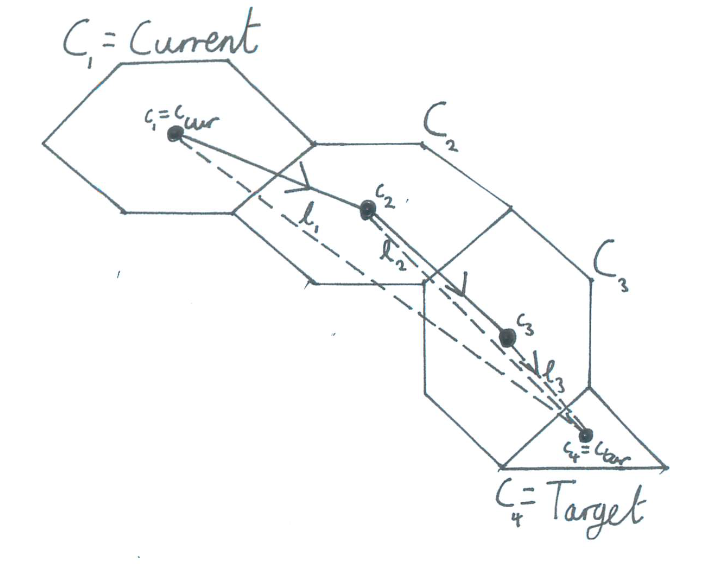 C₁ = Current
c₁ = c_cur
C₂
c₂
l₁
l₂
C₃
c₃
l₃
c₄ = c_tar
C₄ = Target